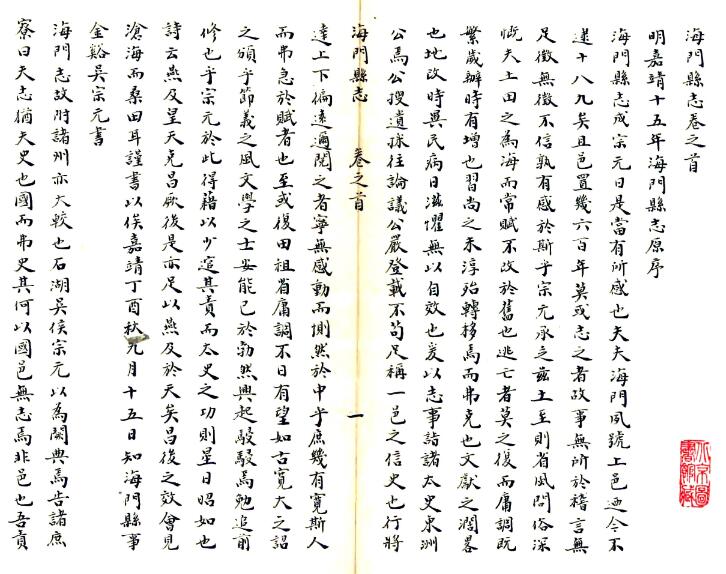 海門縣志卷之首
明嘉靖十五年海門縣志原序
海門縣志成宗元曰是當有所感也夫夫海門夙號上邑迺今不
逮十八九矣且邑置幾六百年莫或志之者故事無所於稽言無
足徵無徵不信孰有感於斯乎宗元承乏茲土至則省風問俗深
慨夫土田之為海而常賦不改於舊也逃亡者莫之復而庸調旣
繁歲辦時有增也習尚之未淳殆轉移焉而弗克也文獻之濶畧
也地改時異民病日滋懼無以自效也爰以志事諮諸太史東洲
公焉公搜遺採往論議公嚴登載不苟足稱一邑之信史也行將
海門縣志 卷之首 一
達上下徧遠邇閱之者寧無感動而惻然於中乎庶幾有寬斯人
而弗急於賦者也至或復田租省庸調不日有望如古寬大之詔
之頒乎節義之風文學之士安能已於勃然興起駸駸焉勉追前
修也乎宗元於此得藉以少逭其責而太史之功則星日昭如也
詩云燕及皇天克昌厥後是亦足以燕及於天矣昌後之效會見
滄海而桑田耳謹書以俟嘉靖丁酉秋九月十五日知海門縣事
金谿吳宗元書
海門志故附諸州亦大較也石湖吳侯宗元以為闕典焉告諸庶
寮曰夫志猶夫史也國而弗史其何以國邑無志焉非邑也吾責
北京圖
書館藏